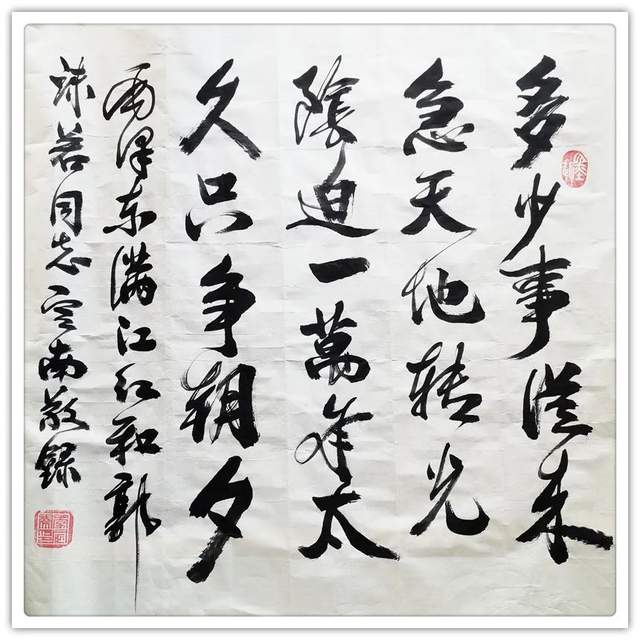 多少事從来
急天地轉光
陰迫一萬年太
久只争朝夕
毛泽东满江红和郭
沫若同志南敬録